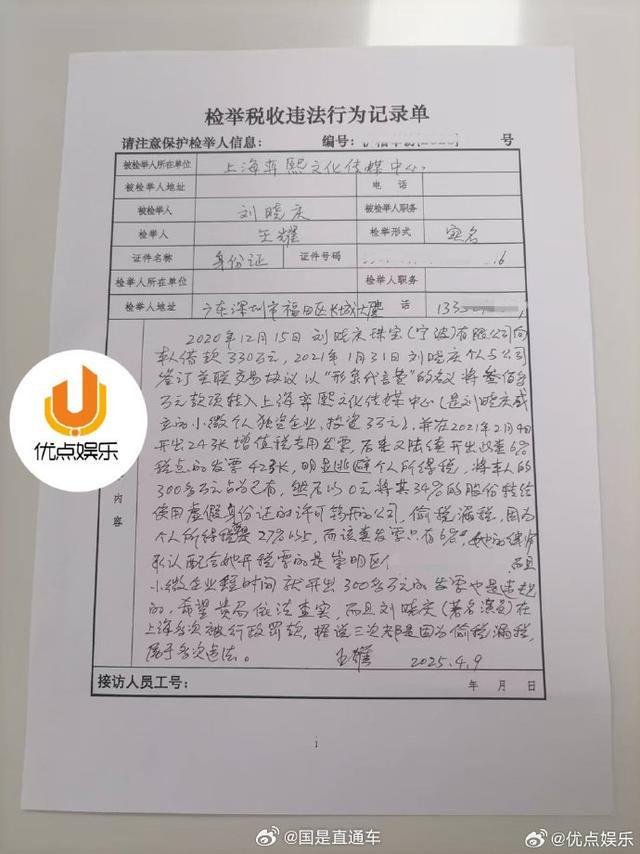 检举税收违法行为记录单
请注意保护检举人信息： 编号： 号
被检举人所在单位 上海弈熙文化传媒中心
被检举人地址 电 话
被检举人 刘晓庆 被检举人职务
检举人 王耀 检举形式 实名
证件名称 身份证 证件号码 16
检举人所在单位 检举人职务
检举人地址 广东深圳市福田区长城大厦 133
2020年12月15日刘晓庆珠宝(宁波)有限公司向
本人借款330万元，2021年1月31日刘晓庆个人与公司
签订关联交易协议以"形象代言费"的名义将叁佰多
万元款项转入上海弈熙文化传媒中心(是刘晓庆成
立的小微个人独资企业，投资3万元)，并在2021年2月4日
开出24张增值税专用发票，后来又陆续开出此类6%
税点的发票42张，明显逃避个人所得税，将本人的
300多万元占为己有，然后以0元将其34%的股份转给
使用虚假身份证的许可经开的公司，偷税漏税，因为
个人所得税是27%以上，而该类发票只有6%。她的律师
承认配合她开税票的是崇明区 而且
小微企业短时间就开出300多万元的发票也是违规
的，希望贵局依法查实，而且刘晓庆(著名演员)在
上海多次被行政罚款，据说三次都是因为偷税漏税，
属于多次违法。 王耀 2025.4.9
内容
接访人员工号： 年 月 日
1
优点娱乐
@国是直通车
@优点娱乐